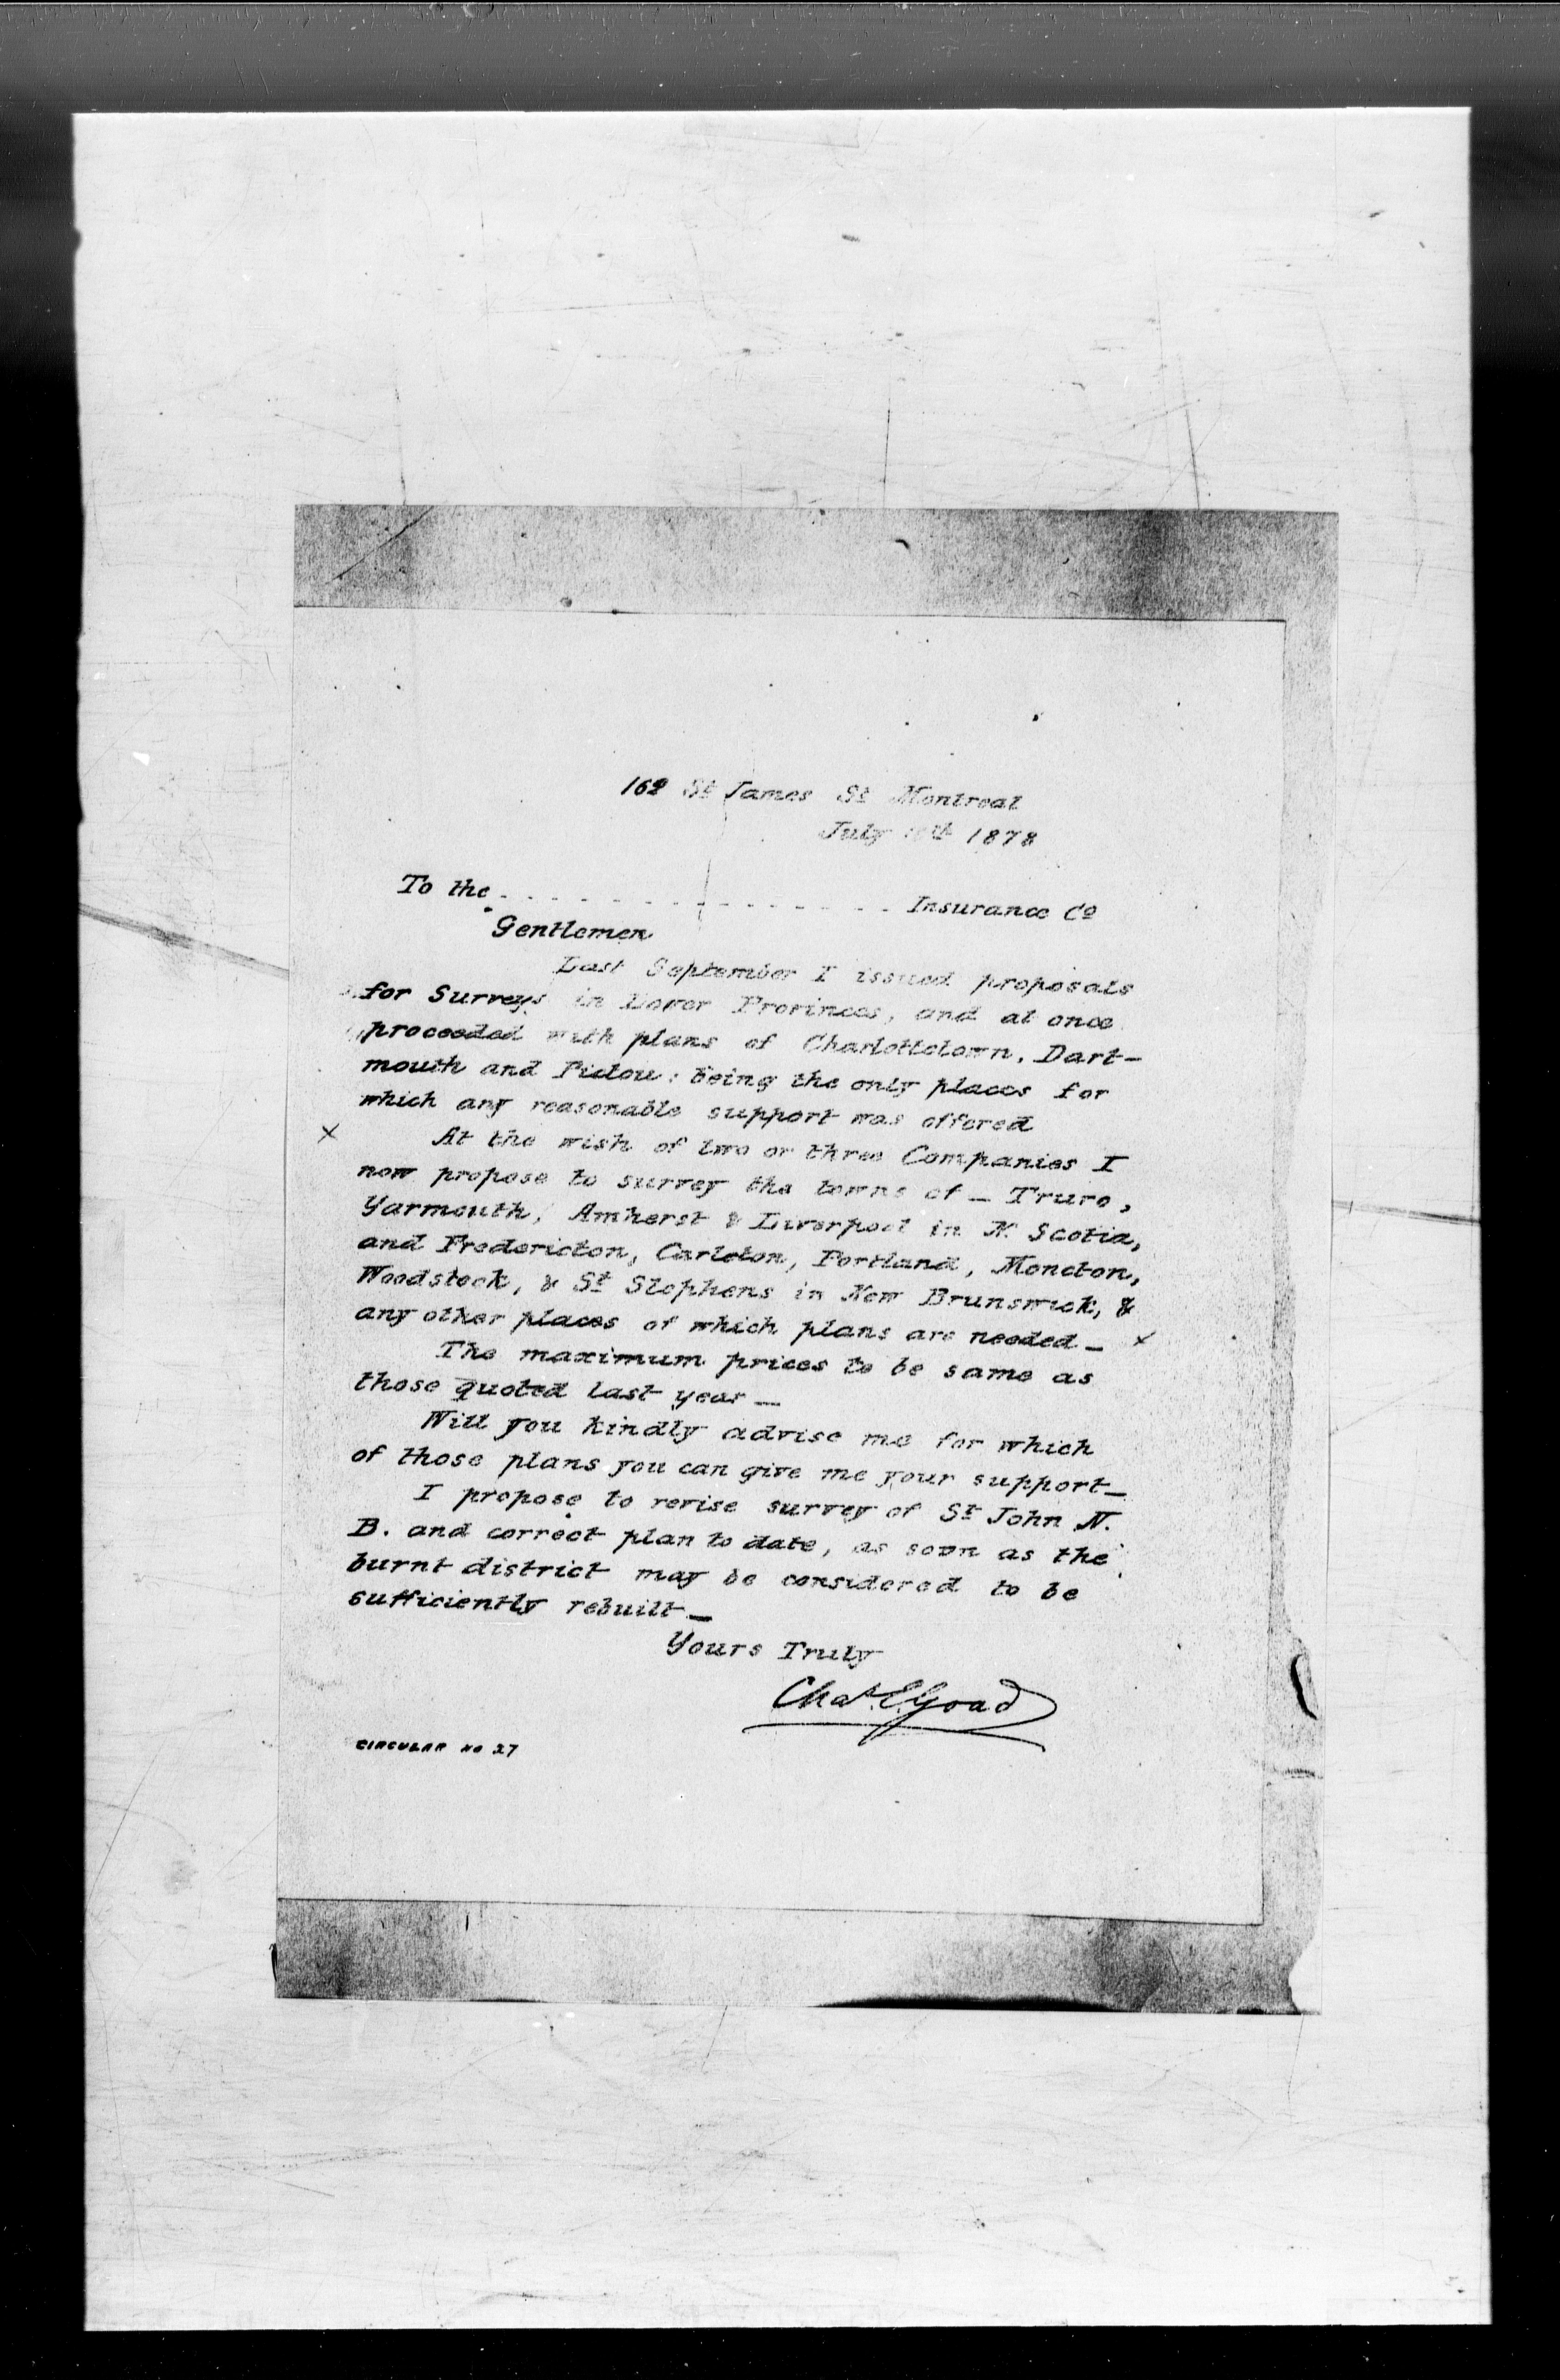 162 St James St Montreal
July 1878
To the . . . . . . . . . . . . . . . . . . Insurance Co
Gentlemen
Last September I issued proposals
for Surveys in Lower Provinces, and at once
proceeded with plans of Charlottetown, Dart-
mouth and Pictou: being the only places for
which any reasonable support was offered
x At the wish of two or three Companies I
now propose to survey the towns of — Truro,
Yarmouth, Amherst & Liverpool in N. Scotia,
and Fredericton, Carleton, Portland, Moncton,
Woodstock, & St Stephens in New Brunswick, &
any other places of which plans are needed — x
The maximum prices to be same as
those quoted last year —
Will you kindly advise me for which
of those plans you can give me your support —
I propose to revise survey of St John N.
B. and correct plan to date, as soon as the
burnt district may be considered to be
sufficiently rebuilt —
Yours Truly
Chas. E. Goad
CIRCULAR No 27